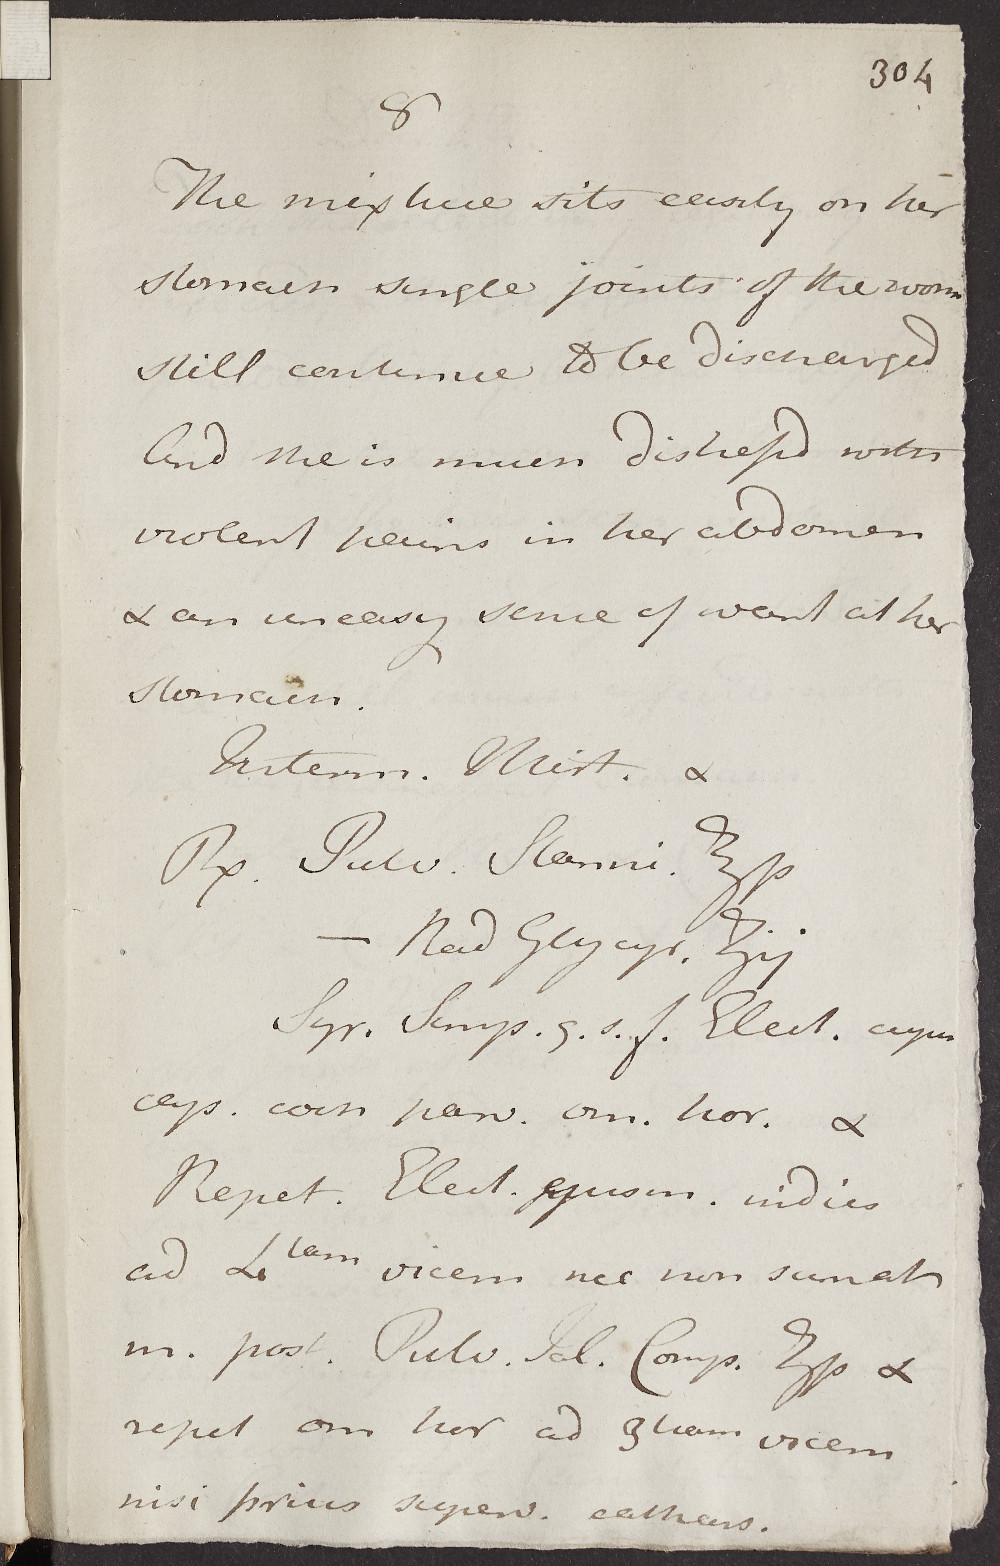 304
8
The mixture sits easily on her
stomach single joints of the worm
still continue to be discharged
And she is much distress'd with
violent pains in her abdomen
& an uneasy sense of want at her
stomach.
Interm. Mist. &
Rx. Pulv. Stanni. ℥ß
— Rad Glycyr. ʒij
Syr. Simp. q. s. f. Elect. cujus
cap. coch parv. om. hor. &
Repet. Elect. ejusm. indies
ad 4tam vicem nec non sumat
m. post. Pulv. Jal. Comp. ʒß &
repet om hor ad 3tiam vicem
nisi prius superv. cathars.